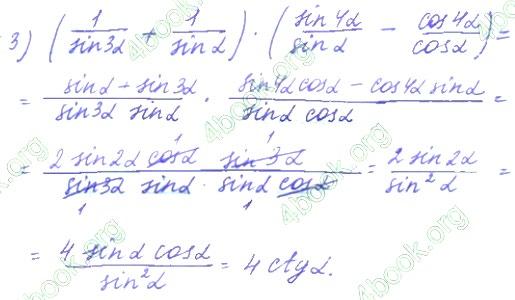 3) (1/sin3α + 1/sinα) · (sin4α/sinα − cos4α/cosα) =
= (sinα + sin3α)/(sin3α sinα) · (sin4α cosα − cos4α sinα)/(sinα cosα) =
= (2 sin2α cosα sin3α)/(sin3α sinα · sinα cosα) = (2 sin2α)/(sin²α) =
= (4 sinα cosα)/(sin²α) = 4 ctgα.
4book.org